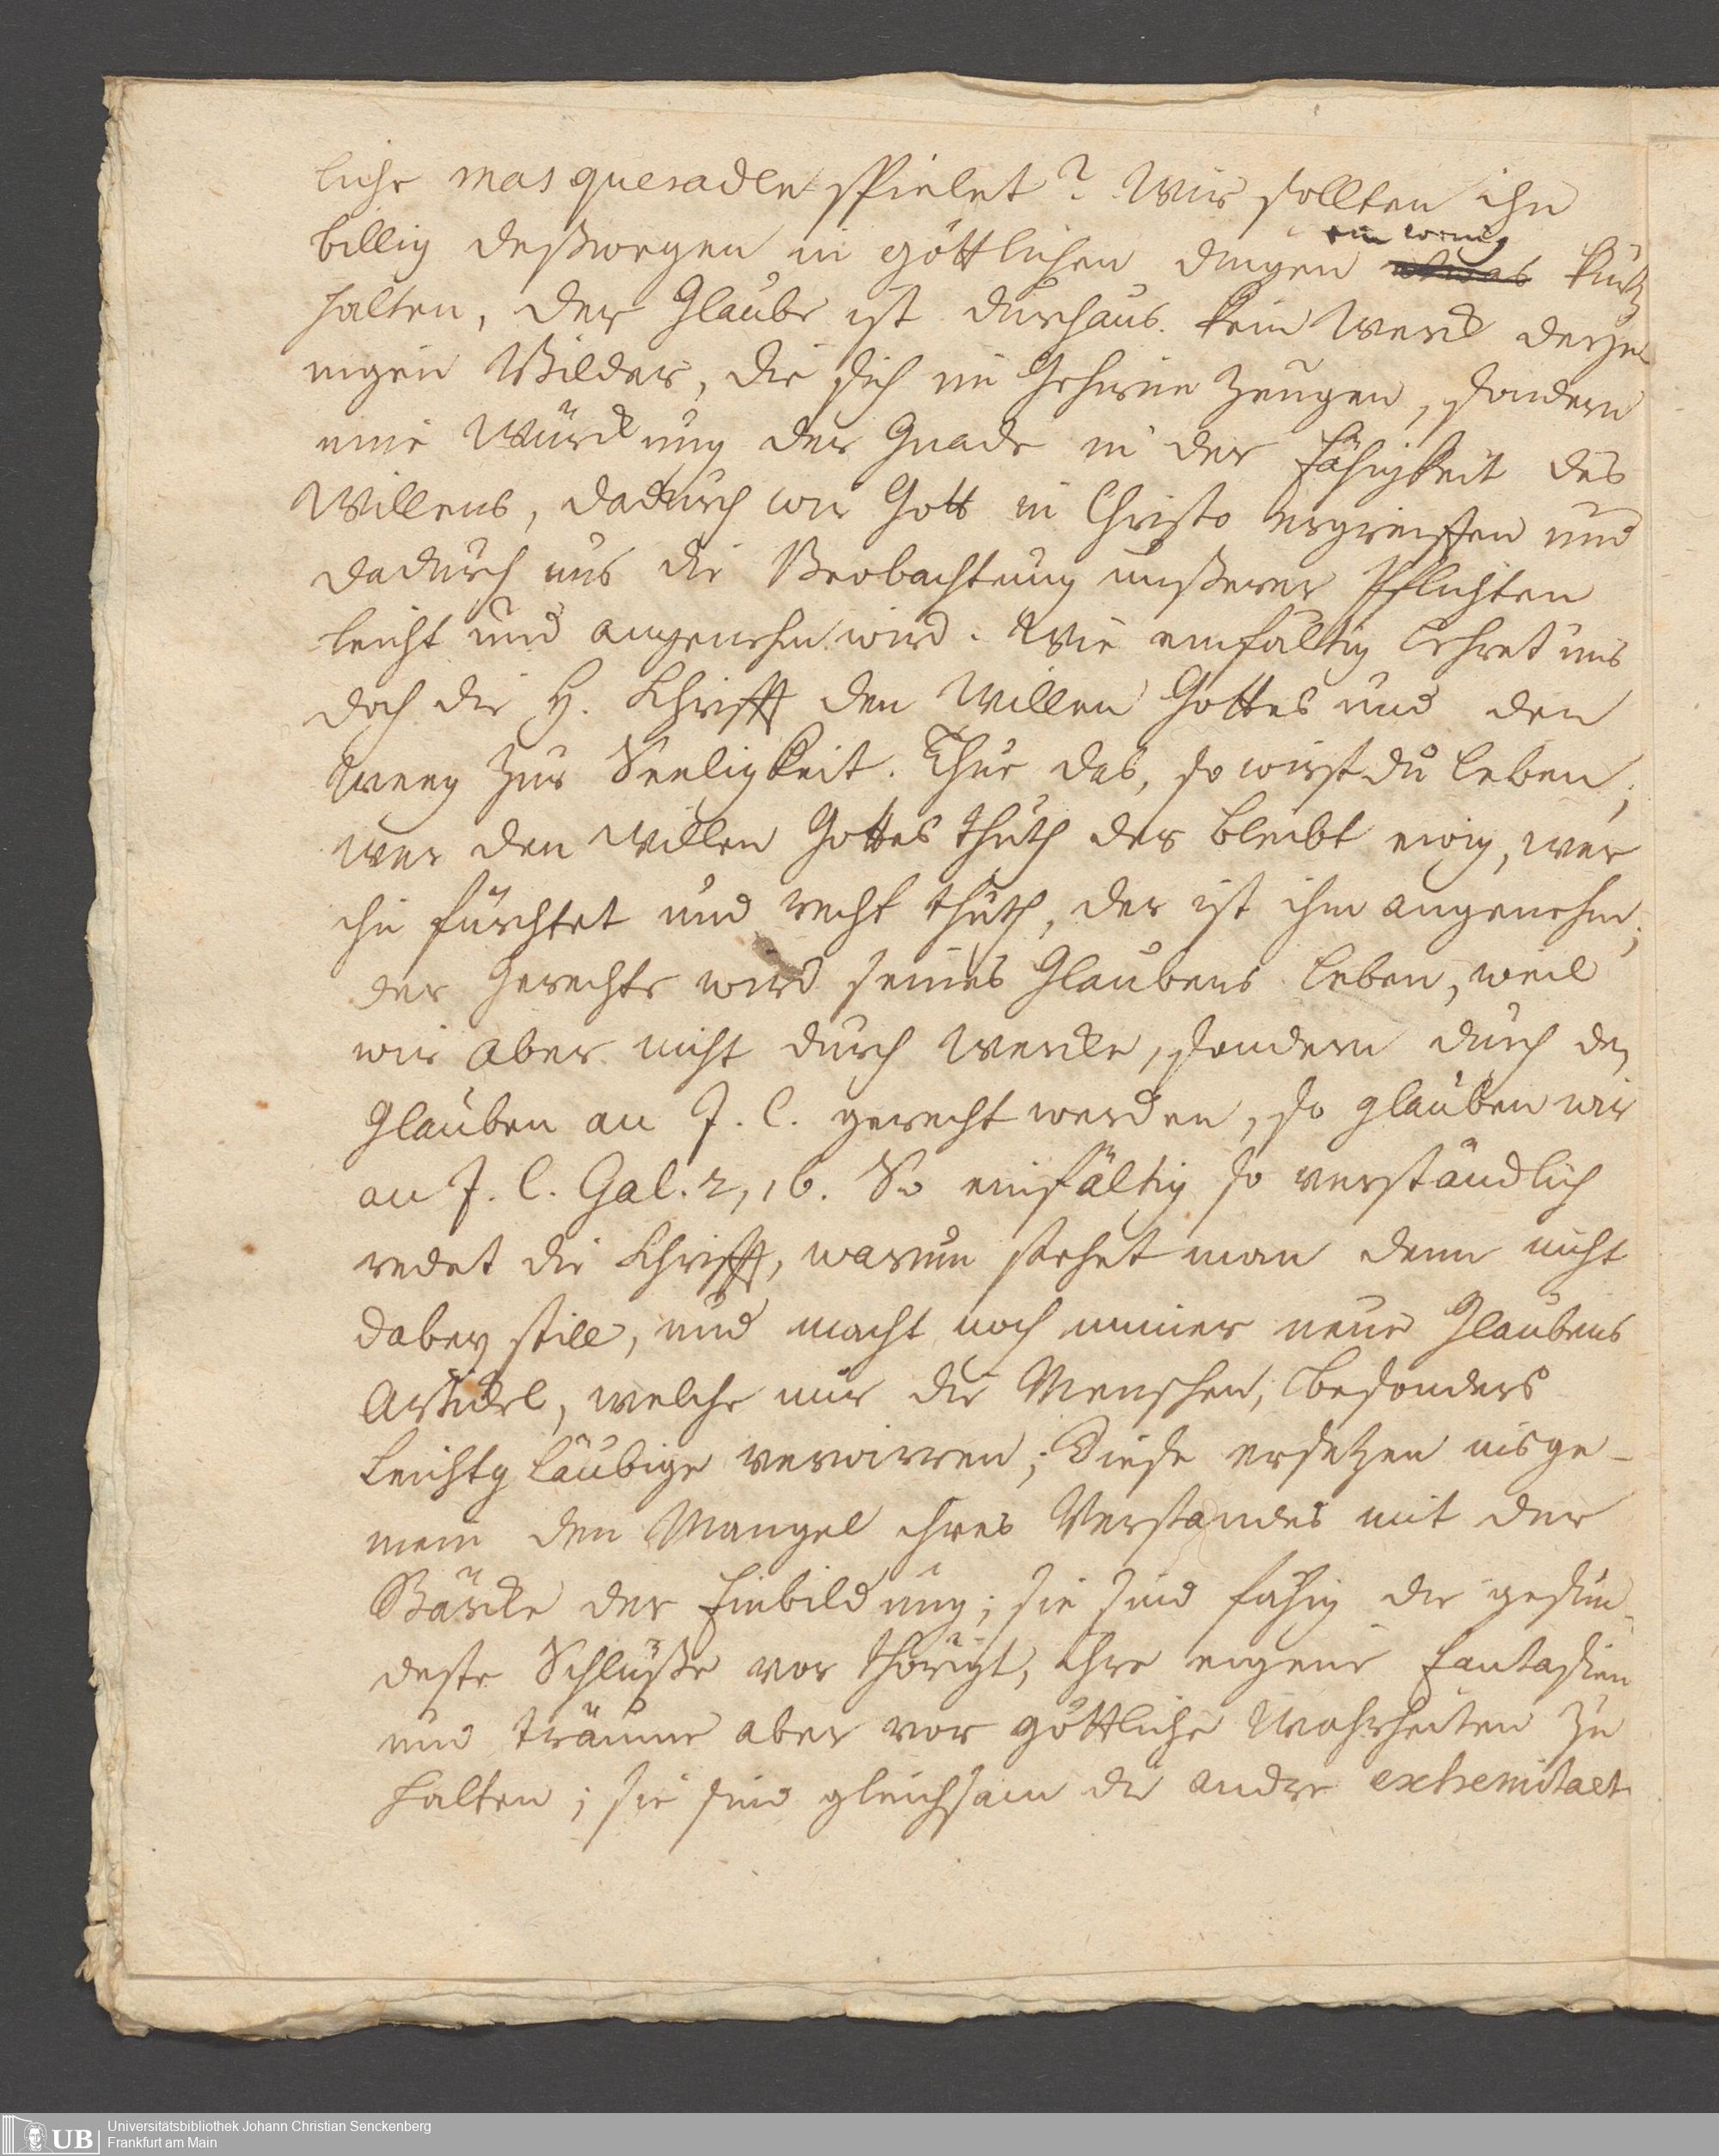 liche masquerade spielet? Wir sollten ihn
billig deßwegen in göttlichen dingen ein wenig etwas kurtz
halten, der Glaube ist durchaus kein Werck derje
nigen Bilder, die sich im Gehirne zeugen, sondern
eine Würckung der Gnade in der Fähigkeit des
Willens, dadurch wir Gott in Christo ergreiffen und
dadurch uns die Beobachtung unßerer Pflichten
leicht und angenehm wird. Wie einfältig lehret uns
doch die H. Schrifft den Willen Gottes und den
Weeg zur Seeligkeit. Thue das, so wirst du leben;
wer den Willen Gottes thuth der bleibt ewig, wer
ihn fürchtet und recht thuth, der ist ihm angenehm;
der Gerechte wird seines Glaubens leben, weil
wir aber nicht durch Wercke, sondern durch den
Glauben an J. C. gerecht werden, so glauben wir
an J. C. Gal. 2, 16. So einfältig so verständlich
redet die Schrifft, warum stehet man denn nicht
dabey still, und macht noch immer neue Glaubens
Artickel, welche nur die Menschen, besonders
Leichtgläubige verwirren; Diese ersetzen insge-
mein den Mangel ihres Verstandes mit der
Stärcke der Einbildung; sie sind fähig die gesun-
deste Schlüße vor thörigt, ihre eigene Fantasien
und träume aber vor göttliche Wahrheiten zu
halten; sie sind gleichsam die andre extremitaet
Universitätsbibliothek Johann Christian Senckenberg
Frankfurt am Main
UB